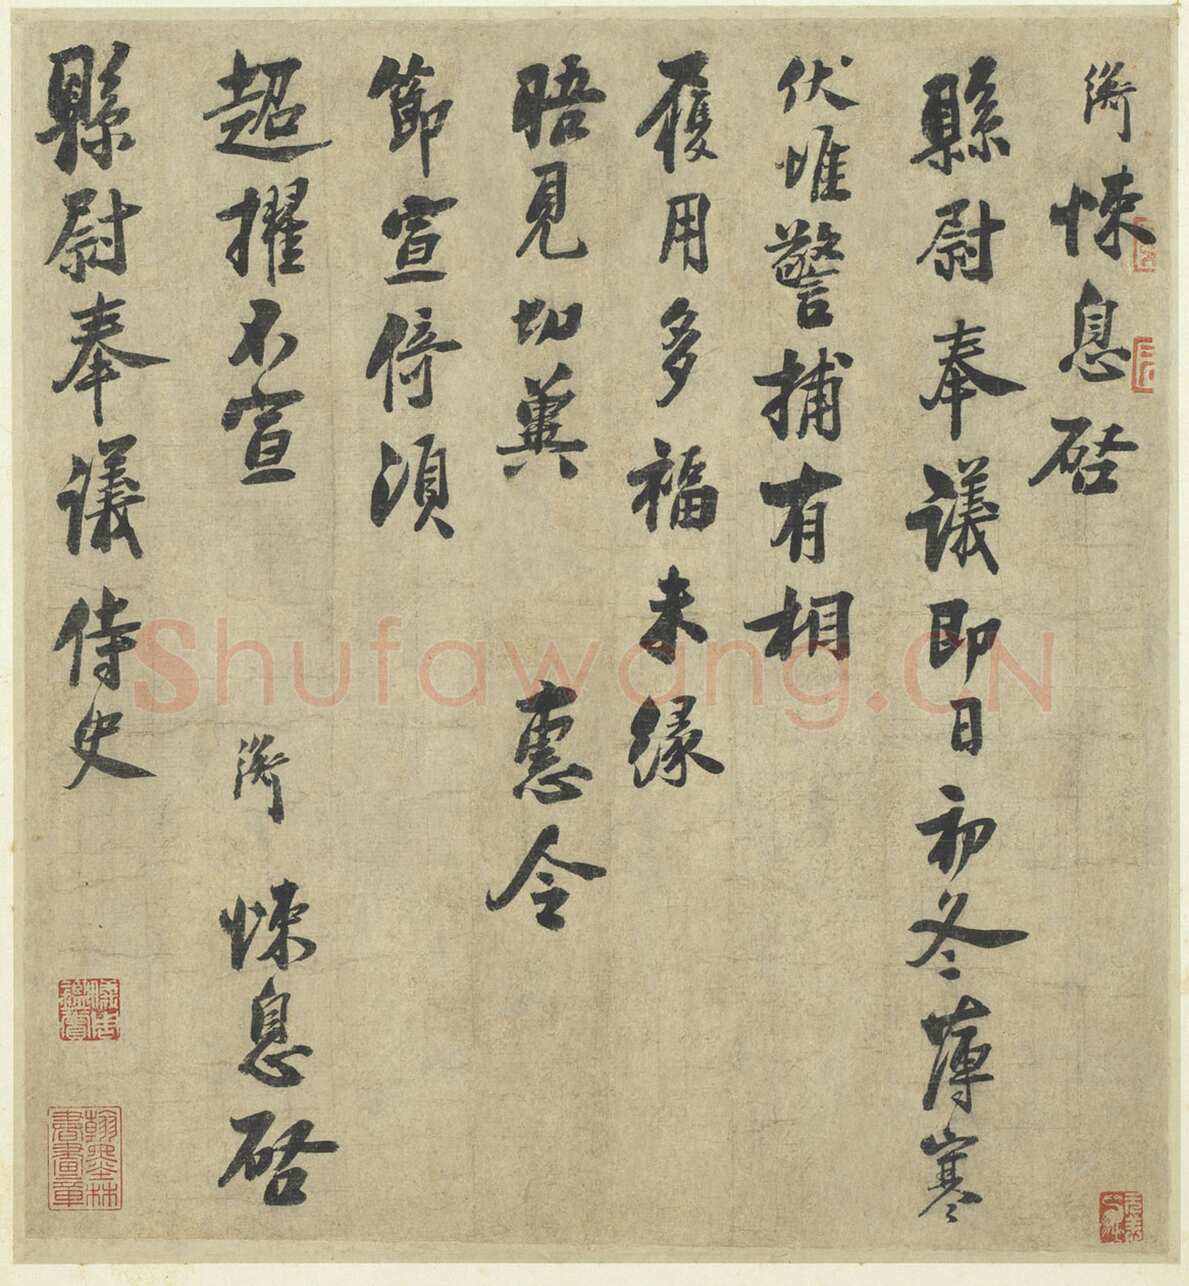 悚息啓
縣尉奉議即日初冬薄寒
伏惟警捕有相
履用多福未緣
晤見切冀 惠令
節宣倚須
超擢不宣 悚息啓
縣尉奉議侍史
翰墨林書畫章
Shufawang.CN